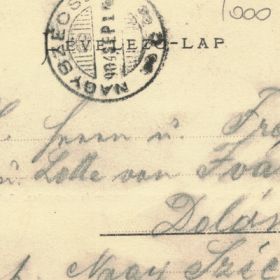 1000
NAGYSZÉCS
904 SEP 1
LEVELEZŐ-LAP
Herrn u. Fr
u. Lotte von Ivá
Dolá
p. Nagy Széc